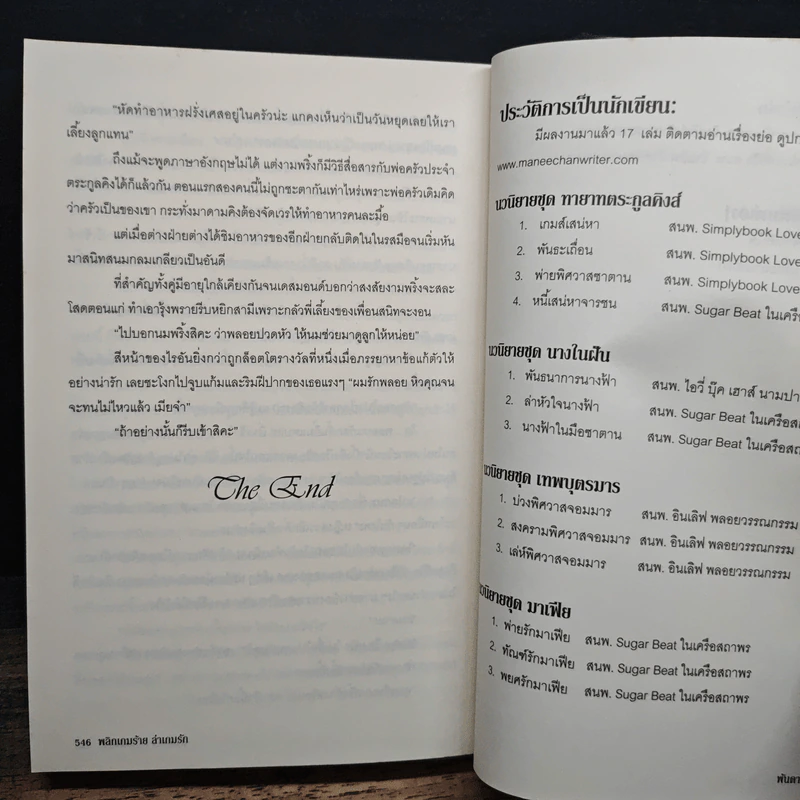 "หัดทำอาหารฝรั่งเศสอยู่ในครัวน่ะ แกคงเห็นว่าเป็นวันหยุดเลยให้เรา
เลี้ยงลูกแทน"
ถึงแม้จะพูดภาษาอังกฤษไม่ได้ แต่งามพริ้งก็มีวิธีสื่อสารกับพ่อครัวประจำ
ตระกูลคิงได้ก็แล้วกัน ตอนแรกสองคนนี้ไม่ถูกชะตากันเท่าไหร่เพราะพ่อครัวเดิมคิด
ว่าครัวเป็นของเขา กระทั่งมาดามคิงต้องจัดเวรให้ทำอาหารคนละมื้อ
แต่เมื่อต่างฝ่ายต่างได้ชิมอาหารของอีกฝ่ายกลับติดใจในรสมือจนเริ่มหัน
มาสนิทสนมกลมเกลียวเป็นอันดี
ที่สำคัญทั้งคู่มีอายุใกล้เคียงกันจนเดสมอนด์บอกว่าสงสัยงามพริ้งจะสละ
โสดตอนแก่ ทำเอารุ้งพรายรีบหยิกสามีเพราะกลัวพี่เลี้ยงของเพื่อนสนิทจะงอน
"ไปบอกนมพริ้งสิคะ ว่าพลอยปวดหัว ให้นมช่วยมาดูลูกให้หน่อย"
สีหน้าของไรอันยิ่งกว่าถูกล็อตโตรางวัลที่หนึ่งเมื่อภรรยาหาข้อแก้ตัวให้
อย่างน่ารัก เลยชะโงกไปจูบแก้มและริมฝีปากของเธอแรงๆ "ผมรักพลอย หิวคุณจน
จะทนไม่ไหวแล้ว เมียจ๋า"
"ถ้าอย่างนั้นก็รีบเข้าสิคะ"
The End
546 พลิกเกมร้าย ล่าเกมรัก
ประวัติการเป็นนักเขียน:
มีผลงานมาแล้ว 17 เล่ม ติดตามอ่านเรื่องย่อ ดูปก
www.maneechanwriter.com
นวนิยายชุด ทายาทตระกูลคิงส์
1. เกมส์เสน่หา สนพ. Simplybook Love
2. พันธะเถื่อน สนพ. Simplybook Love
3. พ่ายพิศวาสซาตาน สนพ. Simplybook Love
4. หนี้เสน่หาจารชน สนพ. Sugar Beat ในเครือ
นวนิยายชุด นางในฝัน
1. พันธนาการนางฟ้า สนพ. ไอวี่ บุ๊ค เฮาส์ นามปา
2. ล่าหัวใจนางฟ้า สนพ. Sugar Beat ในเครือสถา
3. นางฟ้าในมือซาตาน สนพ. Sugar Beat ในเครือสถา
นวนิยายชุด เทพบุตรมาร
1. บ่วงพิศวาสจอมมาร สนพ. อินเลิฟ พลอยวรรณกรรม
2. สงครามพิศวาสจอมมาร สนพ. อินเลิฟ พลอยวรรณกรรม
3. เล่ห์พิศวาสจอมมาร สนพ. อินเลิฟ พลอยวรรณกรรม
นวนิยายชุด มาเฟีย
1. พ่ายรักมาเฟีย สนพ. Sugar Beat ในเครือสถาพร
2. ทัณฑ์รักมาเฟีย สนพ. Sugar Beat ในเครือสถาพร
3. พยศรักมาเฟีย สนพ. Sugar Beat ในเครือสถาพร